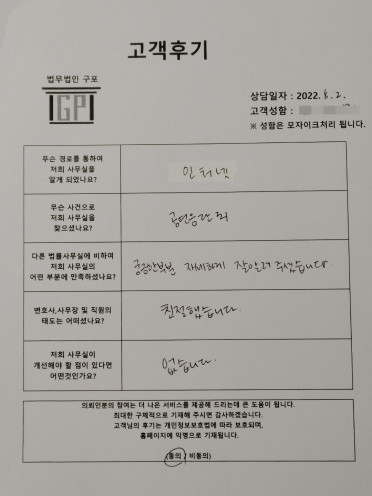 고객후기
법무법인 구포
IGPI
상담일자 : 2022. 8. 2.
고객성함 :
※ 성함은 모자이크처리 됩니다.
무슨 경로를 통하여
저희 사무실을
알게 되었나요?
인터넷
무슨 사건으로
저희 사무실을
찾으셨나요?
공연음란죄
다른 법률사무실에 비하여
저희 사무실의
어떤 부분에 만족하셨나요?
궁금한부분 자세하게 잘알려 주셨습니다.
변호사,사무장 및 직원의
태도는 어떠셨나요?
친절했습니다.
저희 사무실이
개선해야 할 점이 있다면
어떤것인가요?
없습니다.
의뢰인분의 참여는 더 나은 서비스를 제공해 드리는데 큰 도움이 됩니다.
최대한 구체적으로 기재해 주시면 감사하겠습니다.
고객님의 후기는 개인정보보호법에 따라 보호되며,
홈페이지에 익명으로 기재됩니다.
(동의 / 비동의)